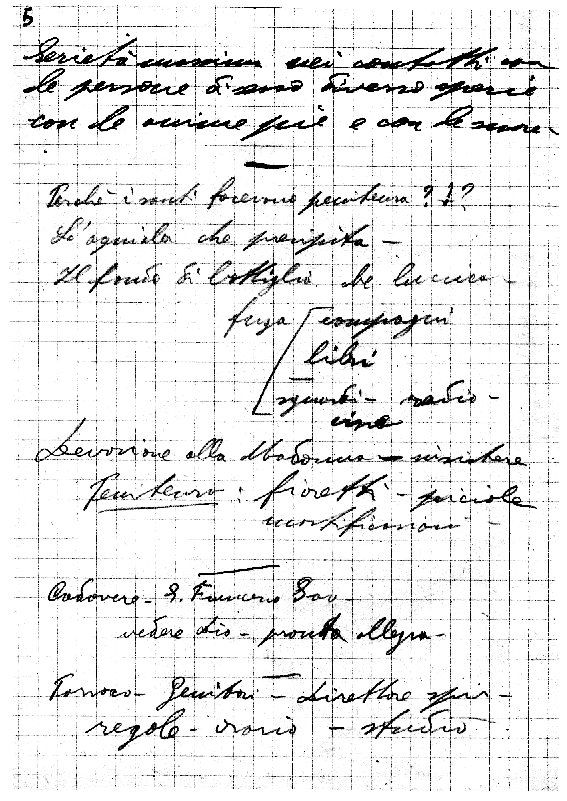 5
Serietà massima nei contatti con
le persone di sesso diverso specie
con le anime pie e con le suore.
Perchè i santi facevano penitenza ? ! ?
L'aquila che precipita -
Il fondo di bottiglia che luccica -
fuga compagni
libri
sguardi - radio -
cine
Devozione alla Madonna - insistere
Penitenza : fioretti - piccole
mortificazioni -
Cadavere - S. Francesco Sav -
vedere Dio - allegra -
Parroco - Genitori - Direttore spir -
regole - orario - studio